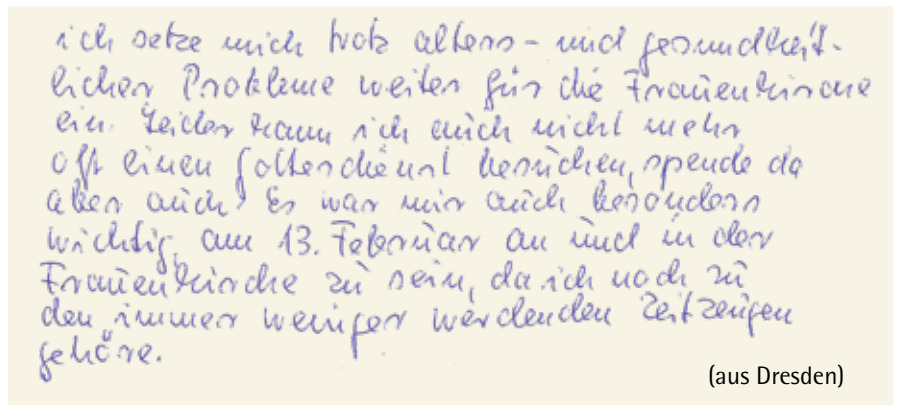 ich setze mich trotz alters- und gesundheit-
licher Probleme weiter für die Frauenkirche
ein. Leider kann ich auch nicht mehr
oft einen Gottesdienst besuchen, spende da
aber auch. Es war mir auch besonders
wichtig, am 13. Februar an und in der
Frauenkirche zu sein, da ich noch zu
den immer weniger werdenden Zeitzeugen
gehöre.
(aus Dresden)